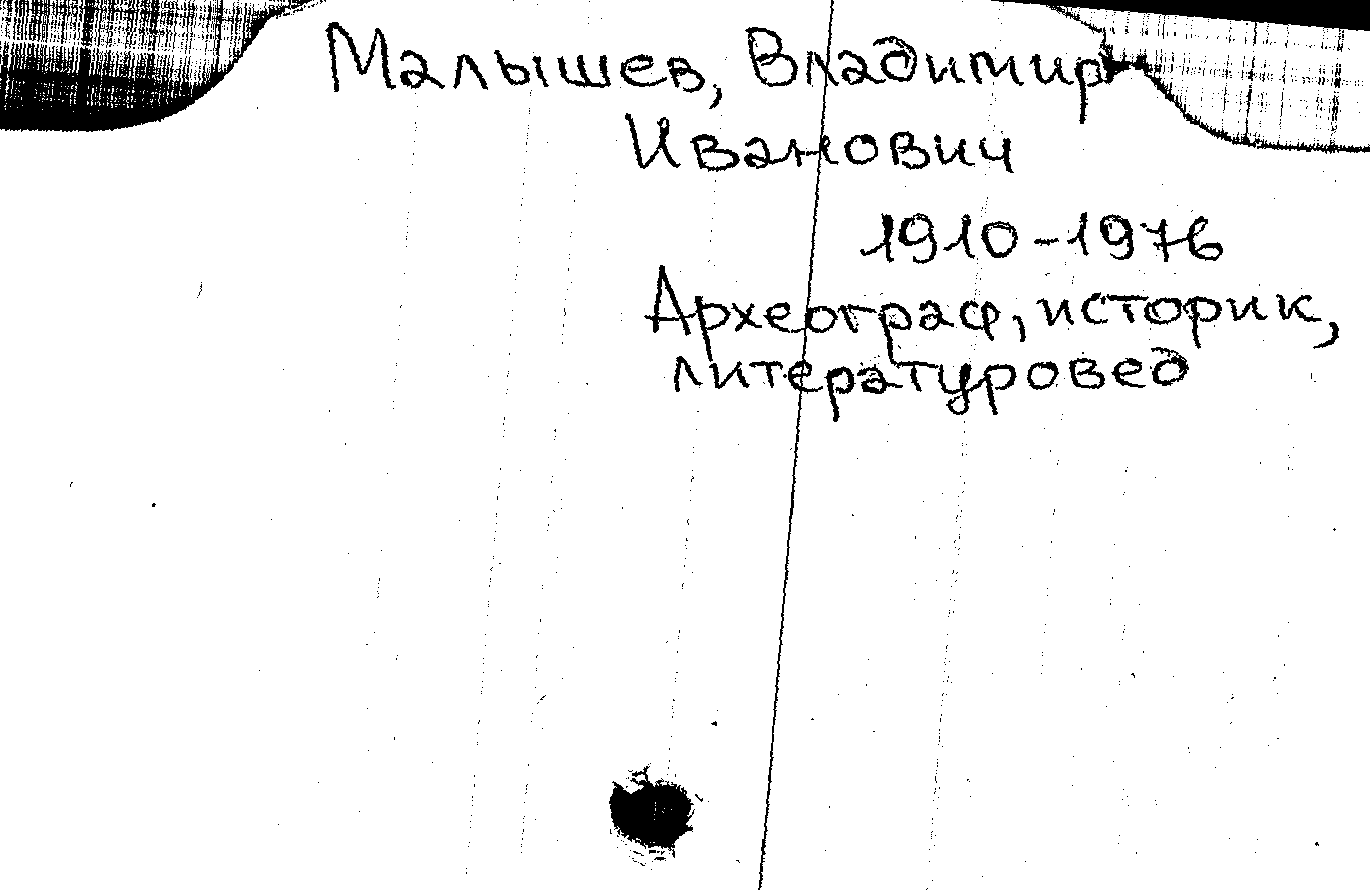 Малышев, Владимир
Иванович
1910-1976
Археограф, историк,
литературовед